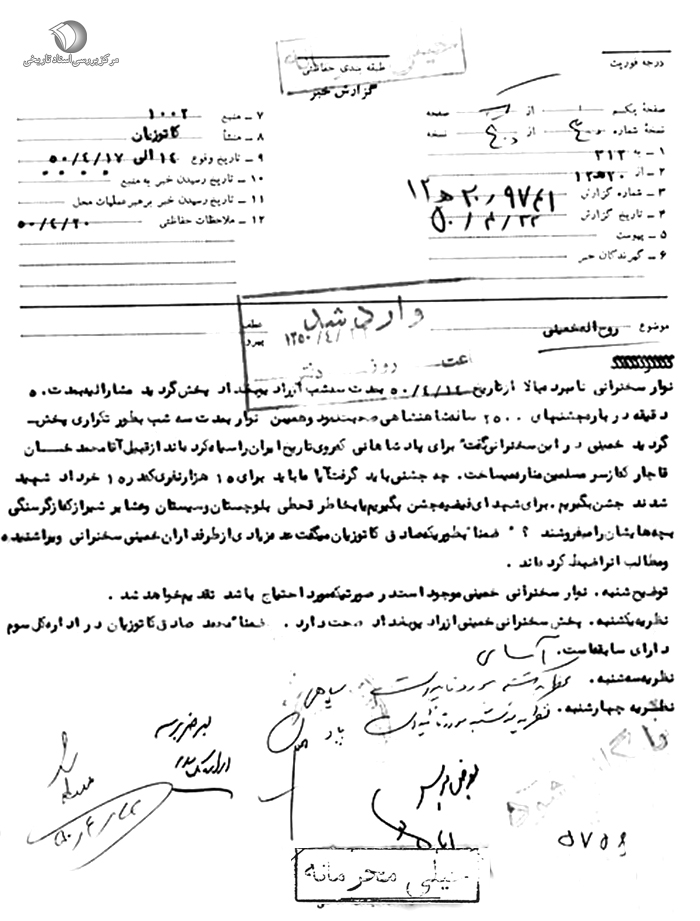 مرکز بررسی اسناد تاریخی
خیلی محرمانه
درجه فوریت
طبقه بندی حفاظتی
گزارش خبر
صفحه یکم از صفحه
نسخه شماره از نسخه
۱ - به ۳۱۲
۲ - از ۲۰ ه ۱۲
۳ - شماره گزارش ۹۷۴۱ / ۲۰ ه ۱۲
۴ - تاریخ گزارش ۵۰/۴/۲۲
۵ - پیوست
۶ - گیرندگان خبر
۷ - منبع ۱۰۰۲
۸ - منشأ کاتوزیان
۹ - تاریخ وقوع ۱۴ الی ۵۰/۴/۱۷
۱۰ - تاریخ رسیدن خبر به منبع
۱۱ - تاریخ رسیدن خبر برهبر عملیات محل
۱۲ - ملاحظات حفاظتی ۵۰/۴/۲۰
وارد شد
۱۳۵۰/۴/
ساعت روز دفتر
موضوع روح اله خمینی
نوار سخنرانی نامبرده بالا از تاریخ ۵۰/۴/۱۴ بمدت سه شب از رادیو بغداد پخش گردید مشارالیه بمدت ۵۰
دقیقه در باره جشنهای ۲۵۰۰ ساله شاهنشاهی صحبت نمود و همین نوار بمدت سه شب بطور تکراری پخش
گردید خمینی در این سخنرانی گفت برای پادشاهانی که روی تاریخ ایران را سیاه کرده اند از قبیل آقا محمد خان
قاجار که از سر مسلمین مناره میساخت. چه جشنی باید گرفت آیا ما باید برای ۱۵ هزار نفری که در ۱۵ خرداد شهید
شدند جشن بگیریم. برای شهدای فیضیه جشن بگیریم یا بخاطر قحطی بلوچستان و سیستان و عشایر شیراز که از گرسنگی
بچه هایشان را میفروشند ؟" ضمنا" بطوریکه صادق کاتوزیان میگفت عده زیادی از طرفداران خمینی سخنرانی ویرا شنیده
و مطالب آنرا ضبط کرده اند .
توضیح شنبه . نوار سخنرانی خمینی موجود است در صورتیکه مورد احتیاج باشد تقدیم خواهد شد .
نظریه یکشنبه . پخش سخنرانی خمینی از رادیو بغداد صحت دارد . ضمنا" محمد صادق کاتوزیان در اداره کل سوم
دارای سابقه است. آسای
نظریه سه شنبه . نظریه یکشنبه مورد تائید است
نظریه چهارشنبه . نظریه سه شنبه مورد تائید است
۵۰/۴/۲۲
خیلی محرمانه